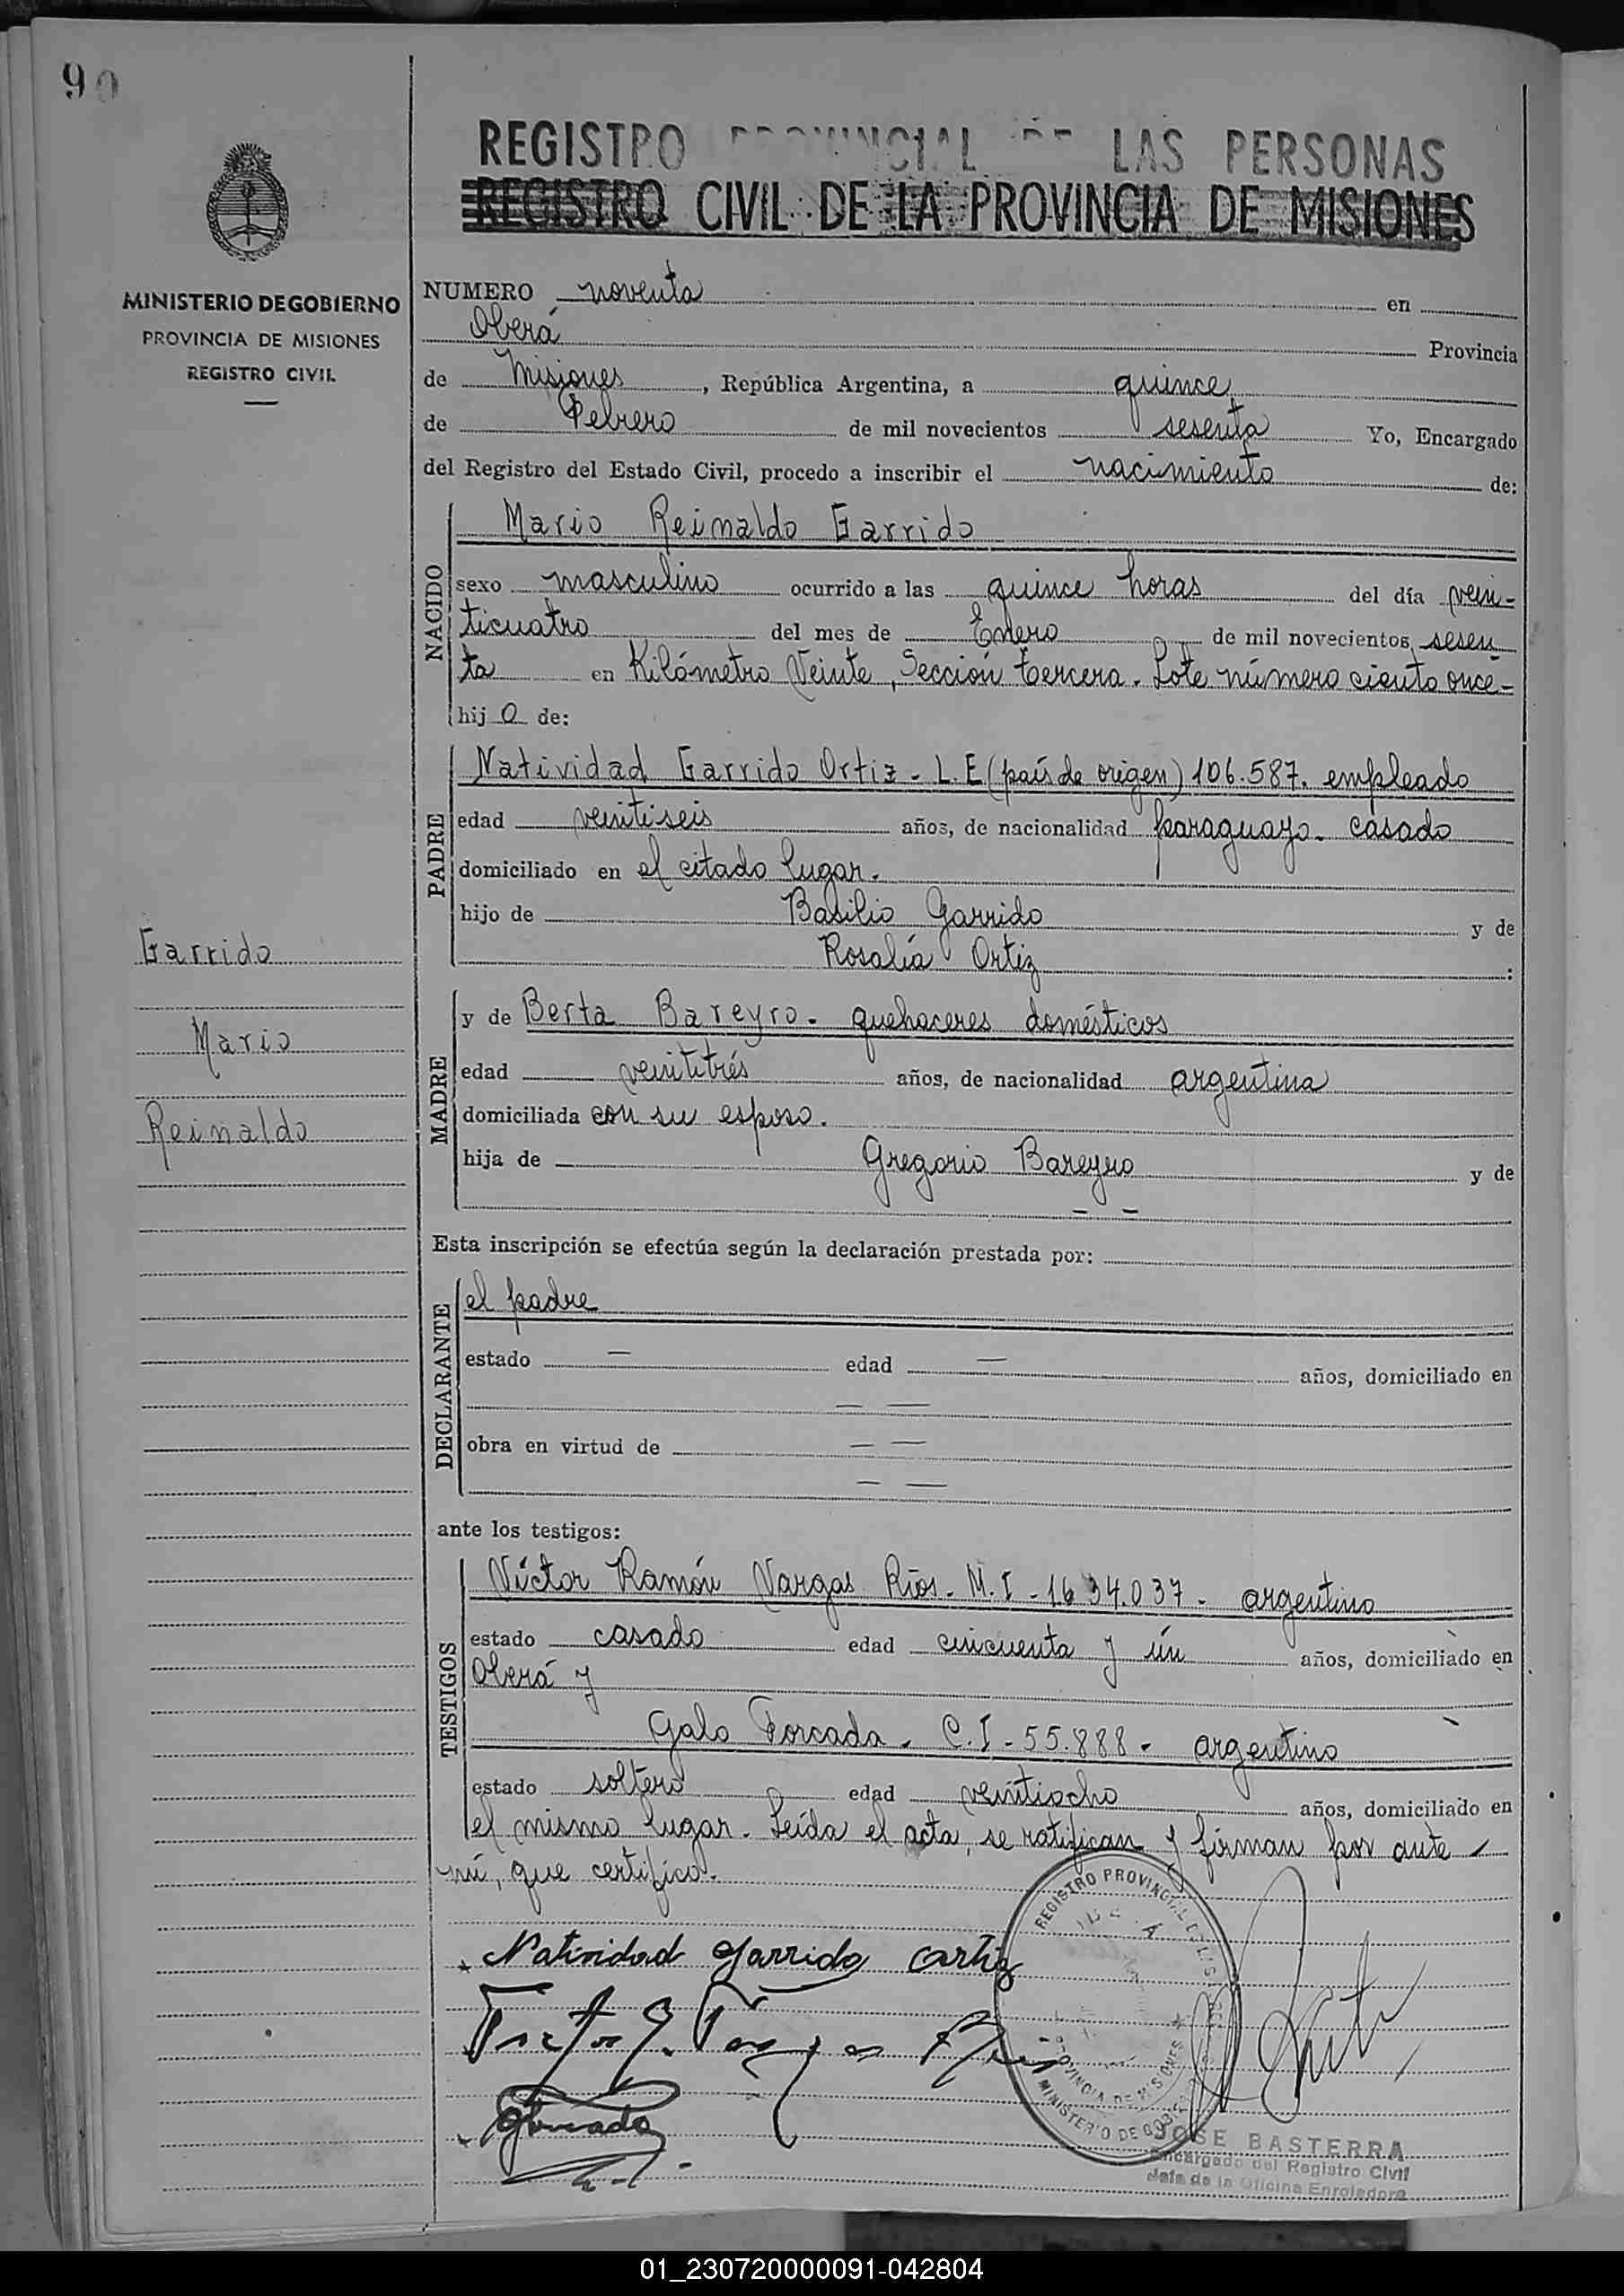 90
REGISTRO PROVINCIAL DE LAS PERSONAS
REGISTRO CIVIL DE LA PROVINCIA DE MISIONES
MINISTERIO DE GOBIERNO
PROVINCIA DE MISIONES
REGISTRO CIVIL
NUMERO noventa en
Oberá Provincia
de Misiones, República Argentina, a quince
de Febrero de mil novecientos sesenta Yo, Encargado
del Registro del Estado Civil, procedo a inscribir el nacimiento de:
NACIDO
Mario Reinaldo Garrido
sexo masculino ocurrido a las quince horas del día vein-
ticuatro del mes de Enero de mil novecientos sesen
ta en Kilómetro Veinte, Sección tercera. Lote número ciento once-
hijo de:
PADRE
Natividad Garrido Ortiz - L.E (país de origen) 106.587. empleado
edad veintiseis años, de nacionalidad paraguayo. casado
domiciliado en el citado lugar.
hijo de Basilio Garrido y de
Rosalía Ortiz :
MADRE
y de Berta Bareyro. quehaceres domésticos
edad veintitrés años, de nacionalidad argentina
domiciliada con su esposo.
hija de Gregorio Bareyro y de
- -
Garrido
Mario
Reinaldo
Esta inscripción se efectúa según la declaración prestada por:
DECLARANTE
el padre
estado - edad - años, domiciliado en
- -
obra en virtud de - -
- -
ante los testigos:
TESTIGOS
Víctor Ramón Vargas Ríos. M.I - 1.634.037 - argentino
estado casado edad cincuenta y ún años, domiciliado en
Oberá y
Galo Forcada. C.I - 55.888 - argentino
estado soltero edad veintiocho años, domiciliado en
el mismo lugar. Leída el acta, se ratifican y firman por ante
mí, que certifico.
Natividad Garrido Ortiz
Victor R. Vargas Rios
GForcada
REGISTRO PROVINCIAL DE LAS
PROVINCIA DE MISIONES
MINISTERIO DE GOBIERNO
JOSE BASTERRA
Encargado del Registro Civil
Jefe de la Oficina Enroladora
01_230720000091-042804